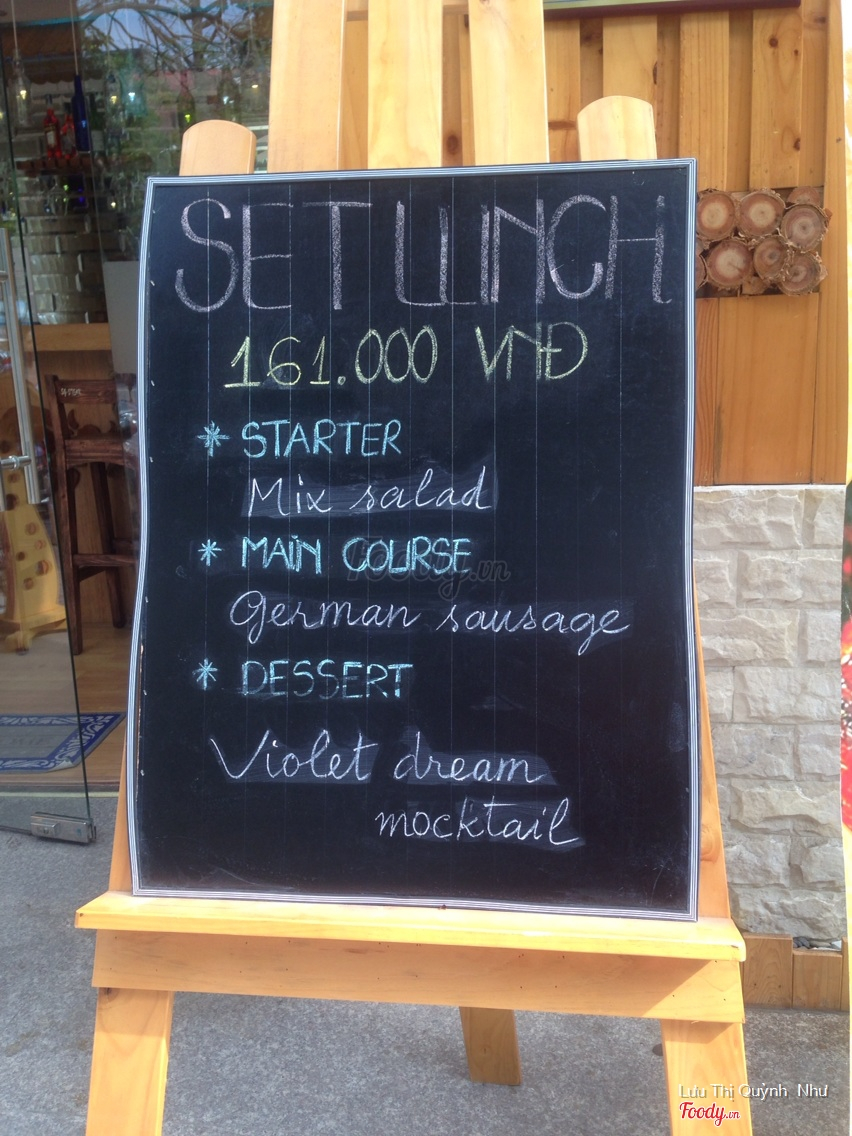 SET LUNCH
161.000 VNĐ
* STARTER
Mix salad
* MAIN COURSE
German sausage
* DESSERT
Violet dream
mocktail
Foody.vn
Lưu Thị Quỳnh Như
Foody.vn